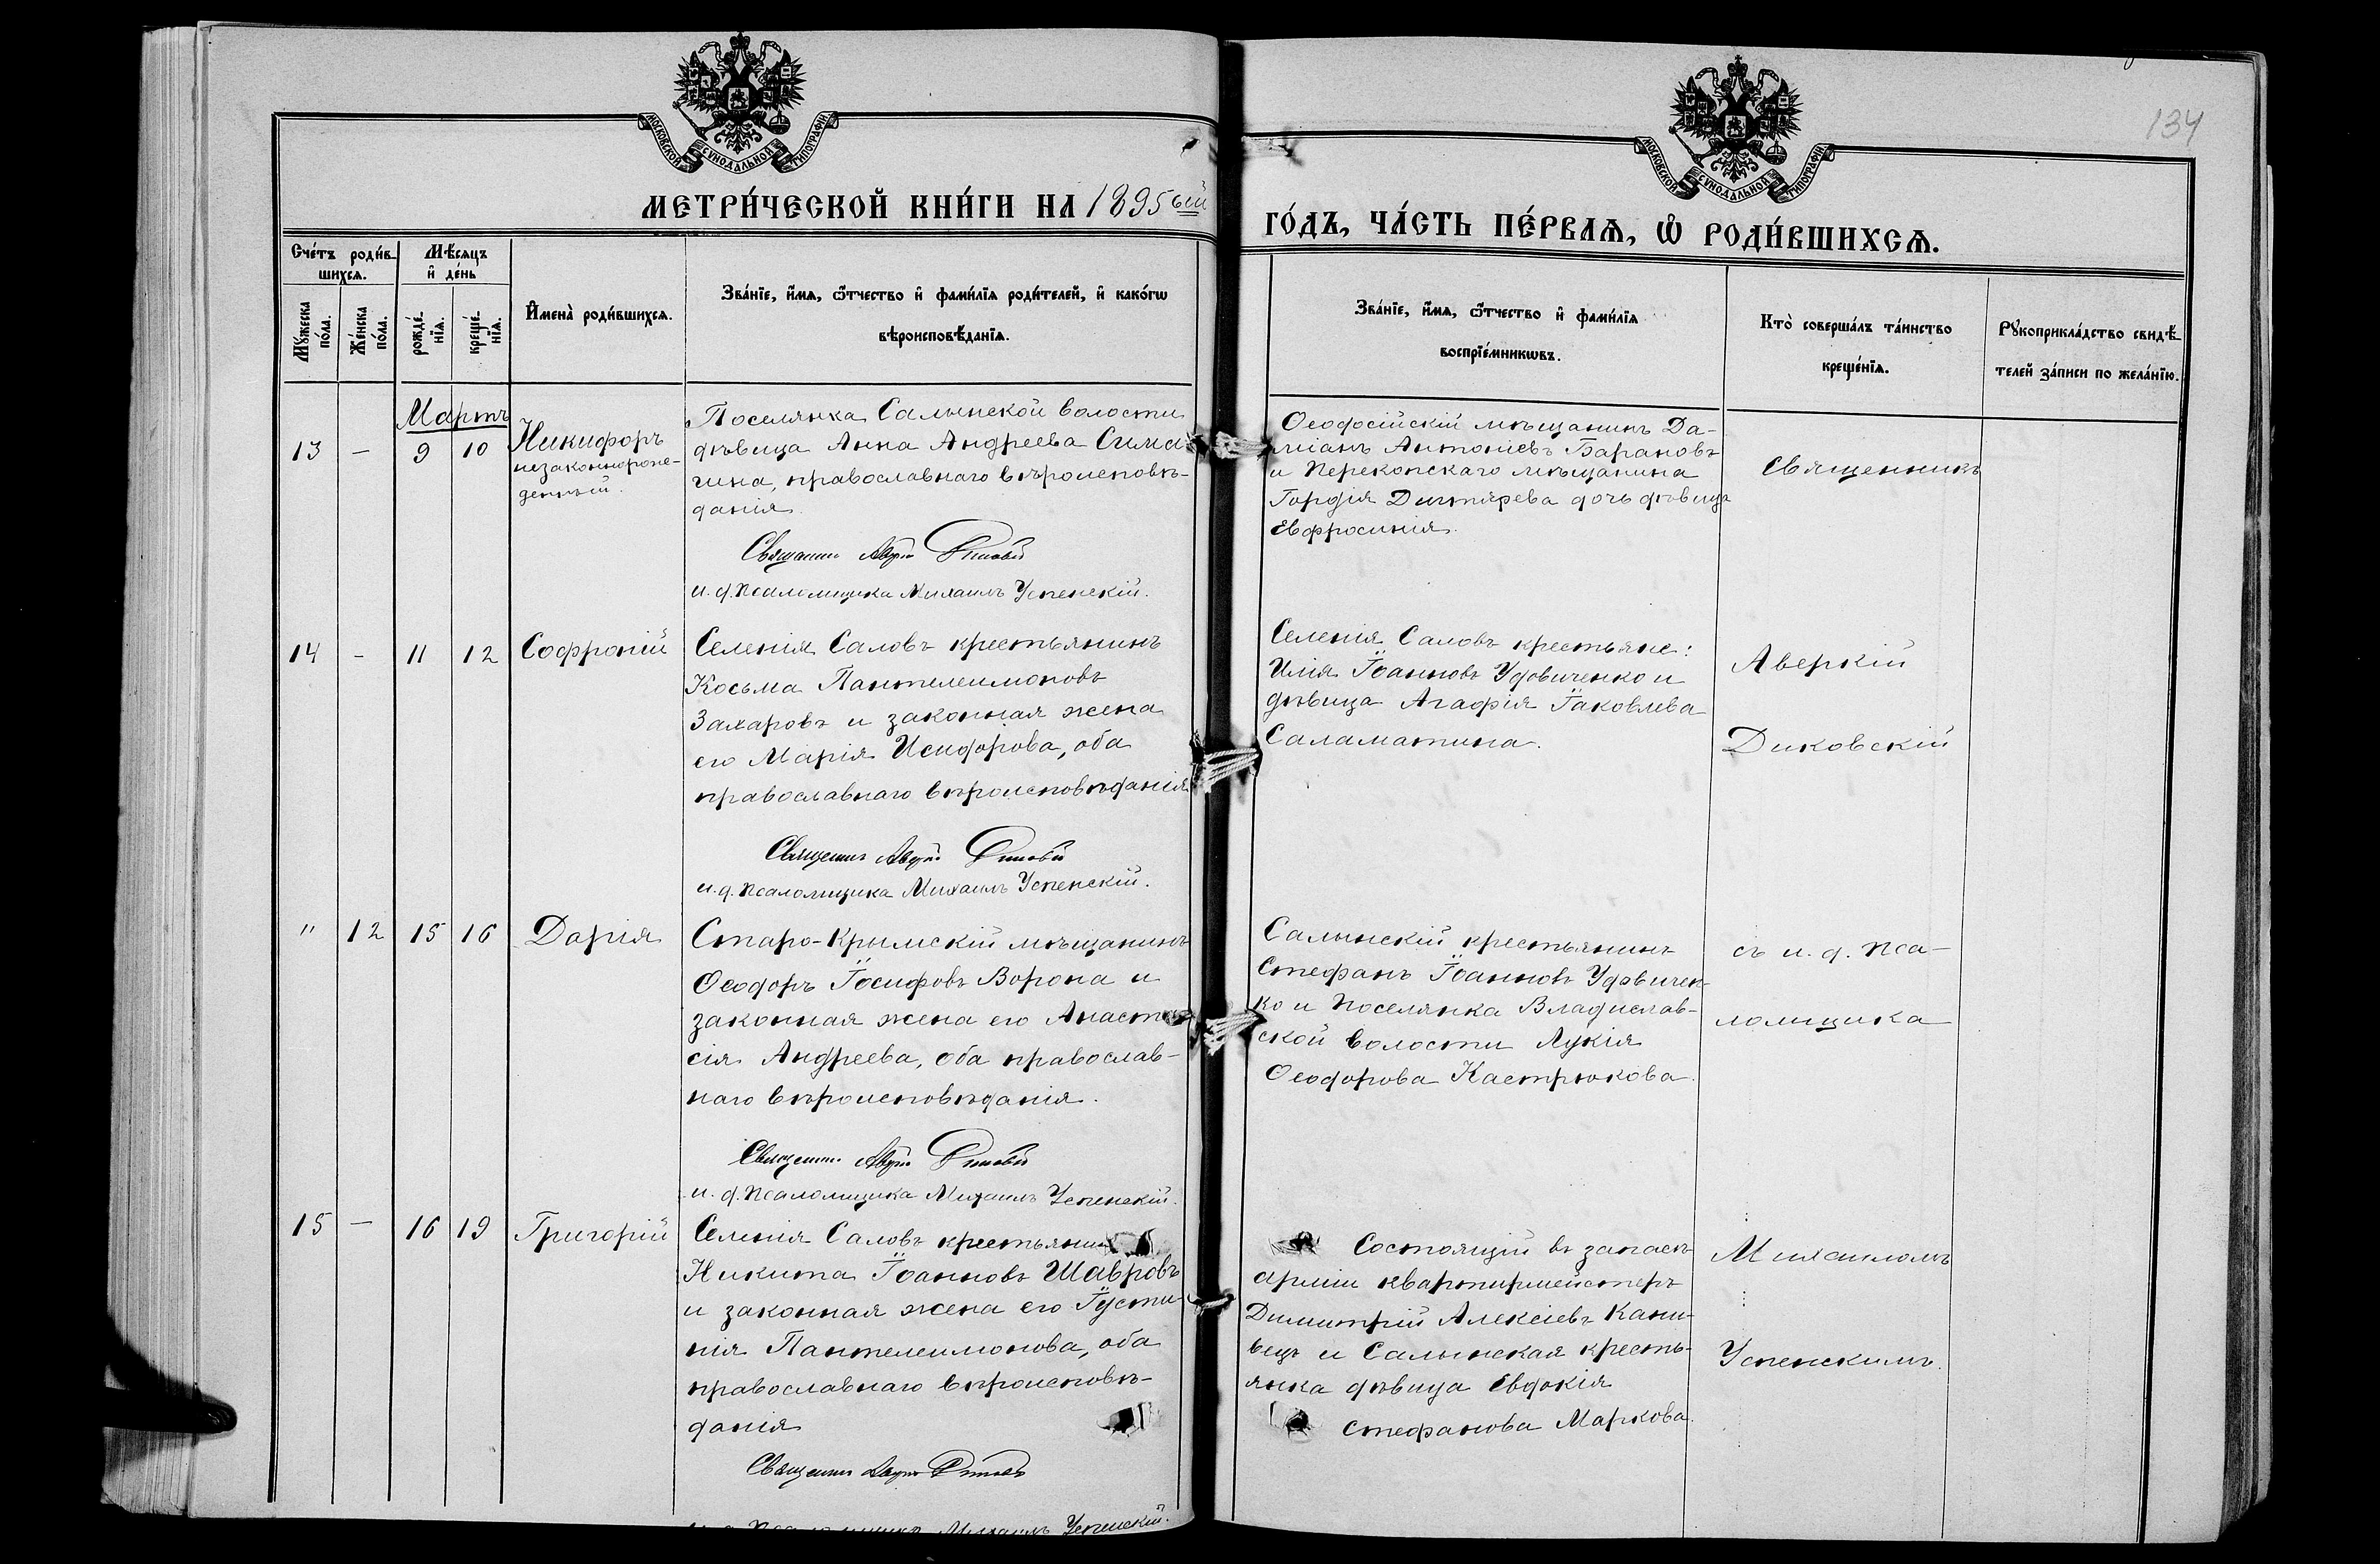 134
МОСКОВСКОЙ СѴНОДАЛЬНОЙ ТИПОГРАФІИ
МОСКОВСКОЙ СѴНОДАЛЬНОЙ ТИПОГРАФІИ
МЕТРИ́ЧЕСКОЙ КНИ́ГИ НА 1895ый
ГО́ДЪ, ЧА́СТЬ ПЕ́РВАѦ, Ѡ҆ РОДИ́ВШИХСѦ.
Сче́тъ роди́в
шихсѧ.
Мѣ́сѧцъ
и҆ де́нь
Мꙋ́жеска
по́ла.
Же́нска
по́ла.
рожде́
нїѧ.
креще́
нїѧ.
И҆мена̀ роди́вшихсѧ.
Зва́нїе, и҆́мѧ, ѻ҆́тчество и҆ фами́лїѧ роди́телей, и҆ како́гѡ
вѣроисповѣ́данїѧ.
Зва́нїе, и҆́мѧ, ѻ҆́тчество и҆ фами́лїѧ
воспрїе́мникѡвъ.
Кто̀ соверша́лъ та́инство
креще́нїѧ.
Рꙋкоприкла́дство свидѣ́
телей за́писи по жела́нїю.
Мартъ
13 — 9 10
Никифоръ
незаконнорож-
денный.
Поселянка Салынской волости
дѣвица Анна Андреева Сима
гина, православнаго вѣроисповѣ-
данія.
Священникъ
и. д. псаломщика Михаилъ Успенскій.
Ѳеодосійскій мѣщанинъ Да-
міанъ Антоніевъ Барановъ
и Перекопскаго мѣщанина
Гордія Дигтярева дочь дѣвица
Евфросинія.
Священникъ
14 — 11 12
Софроній
Селенія Саловъ крестьянинъ
Косьма Пантелеимоновъ
Захаровъ и законная жена
его Марія Исидорова, оба
православнаго вѣроисповѣданія
Священникъ
и. д. псаломщика Михаилъ Успенскій.
Селенія Саловъ крестьяне:
Илія Іоанновъ Удовиченко и
дѣвица Агафія Іаковлева
Саламатина.
Аверкій
Диковскій
" 12 15 16
Дарія
Старо-Крымскій мѣщанинъ
Ѳеодоръ Іосифовъ Ворона и
законная жена его Анаста
сія Андреева, оба православ-
наго вѣроисповѣданія.
Священникъ
и. д. псаломщика Михаилъ Успенскій.
Салынскій крестьянинъ
Стефанъ Іоанновъ Удовичен-
ко и поселянка Владислав-
ской волости Лукія
Ѳеодорова Кастрюкова.
съ и. д. пса-
ломщика
15 — 16 19
Григорій
Селенія Саловъ крестьянин
Никита Іоанновъ Шавровъ
и законная жена его Іусти-
нія Пантелеимонова, оба
православнаго вѣроисповѣ-
данія
Священникъ
и. д. псаломщика Михаилъ Успенскій.
Состоящій въ запасѣ
арміи квартирмейстеръ
Димитрій Алексіевъ Кани-
вецъ и Салынская кресть-
янка дѣвица Евдокія
Стефанова Маркова.
Михаиломъ
Успенскимъ.